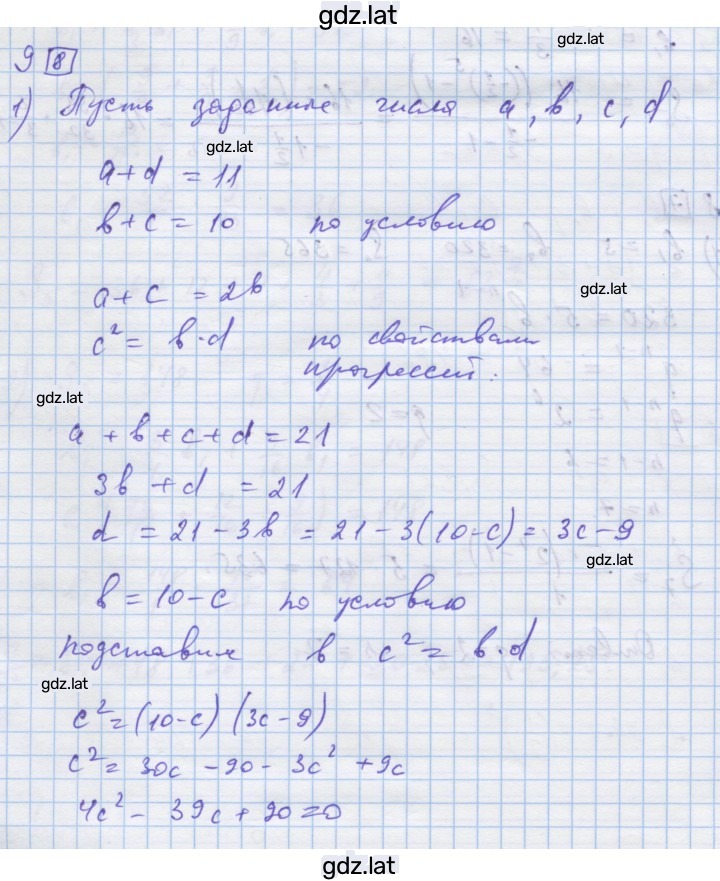 gdz.lat
gdz.lat
9 8
1) Пусть заданные числа a, b, c, d
gdz.lat
a + d = 11
b + c = 10 по условию
gdz.lat
a + c = 2b
c² = b·d по свойствам
прогрессий:
gdz.lat
a + b + c + d = 21
3b + d = 21
d = 21 - 3b = 21 - 3(10 - c) = 3c - 9
gdz.lat
b = 10 - c по условию
подставим в c² = b·d
gdz.lat
c² = (10 - c)(3c - 9)
c² = 30c - 90 - 3c² + 9c
4c² - 39c + 90 = 0
gdz.lat